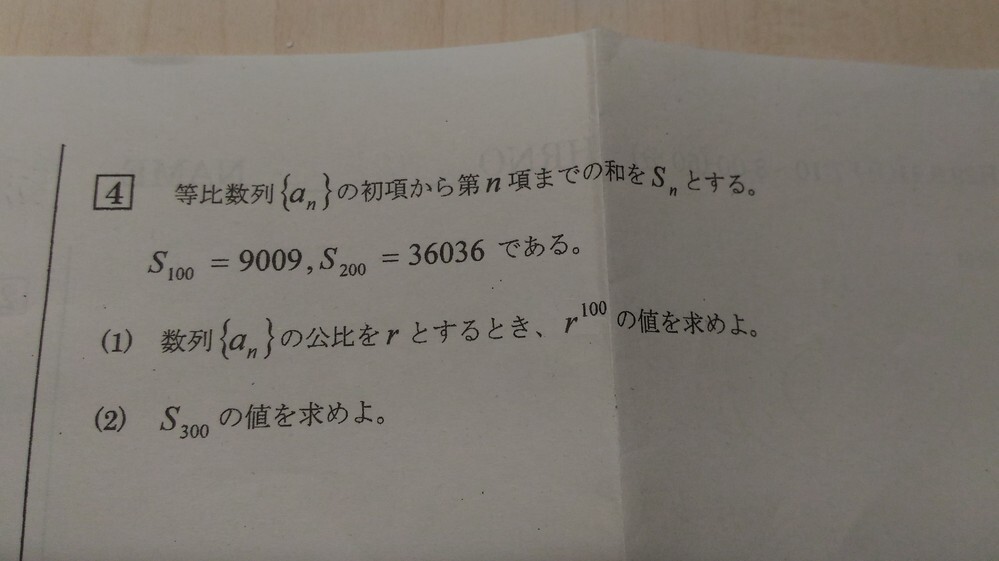 4 等比数列{aₙ}の初項から第n項までの和をSₙとする。
S₁₀₀ = 9009, S₂₀₀ = 36036 である。
(1) 数列{aₙ}の公比をrとするとき、r¹⁰⁰の値を求めよ。
(2) S₃₀₀の値を求めよ。